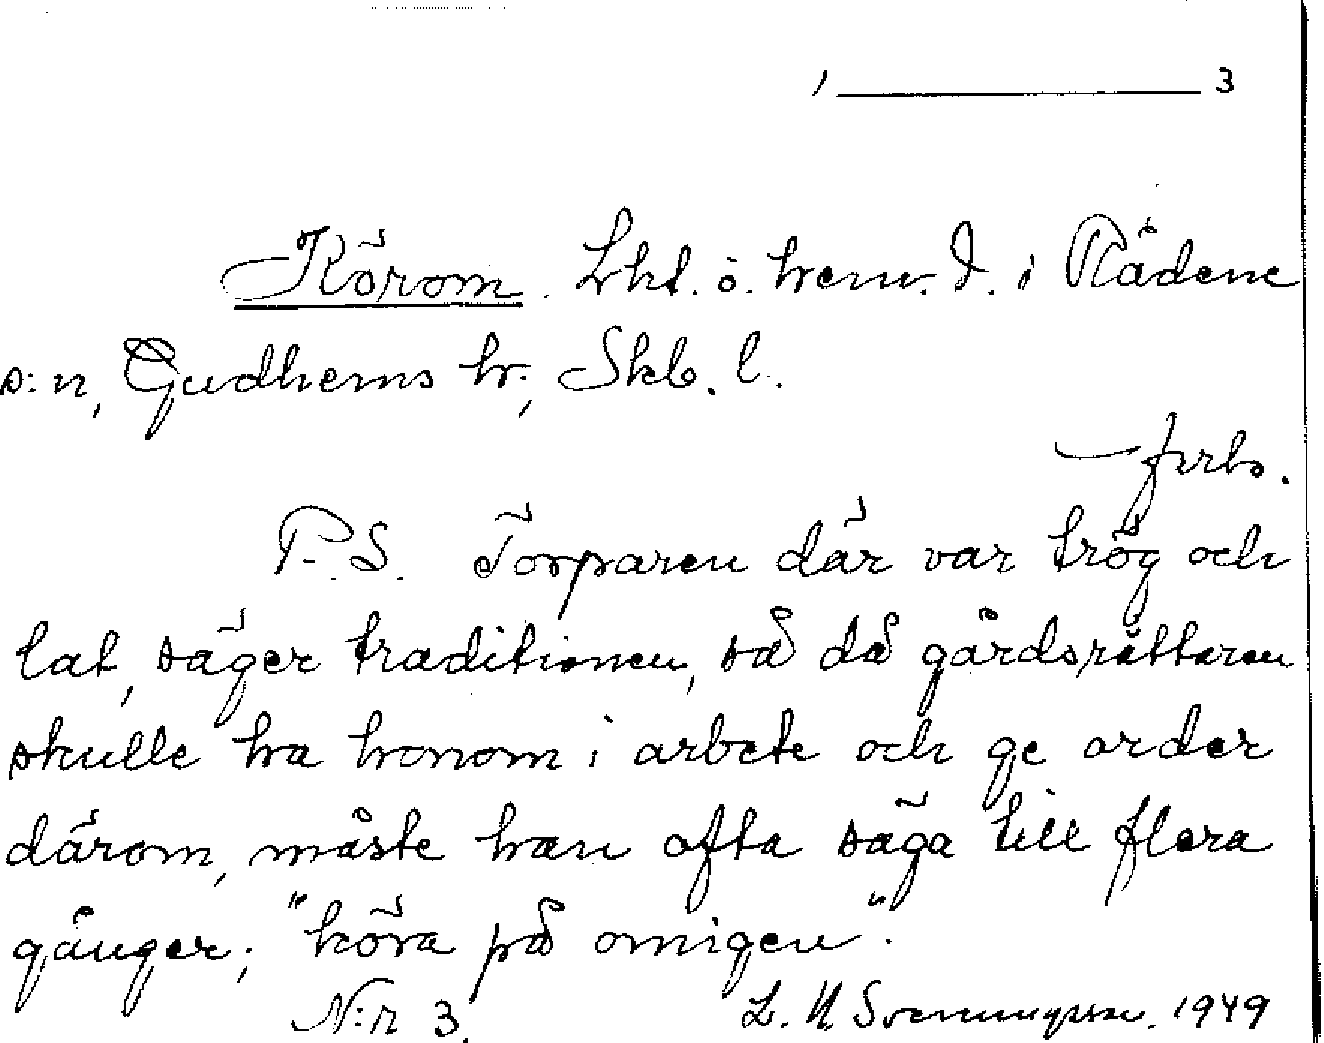 , 3
Körom. Lht. o. hemv. I. i Rådene
s:n, Gudhems hr., Skb. l.
— furbo.
P. S. Torparen där var trög och
lat, säger traditionen, så då gårdsrättaren
skulle ha honom i arbete och ge order
därom, måste han ofta säga till flera
gånger; "köra på omigen".
N:r 3. L. N Svenungsson. 1949